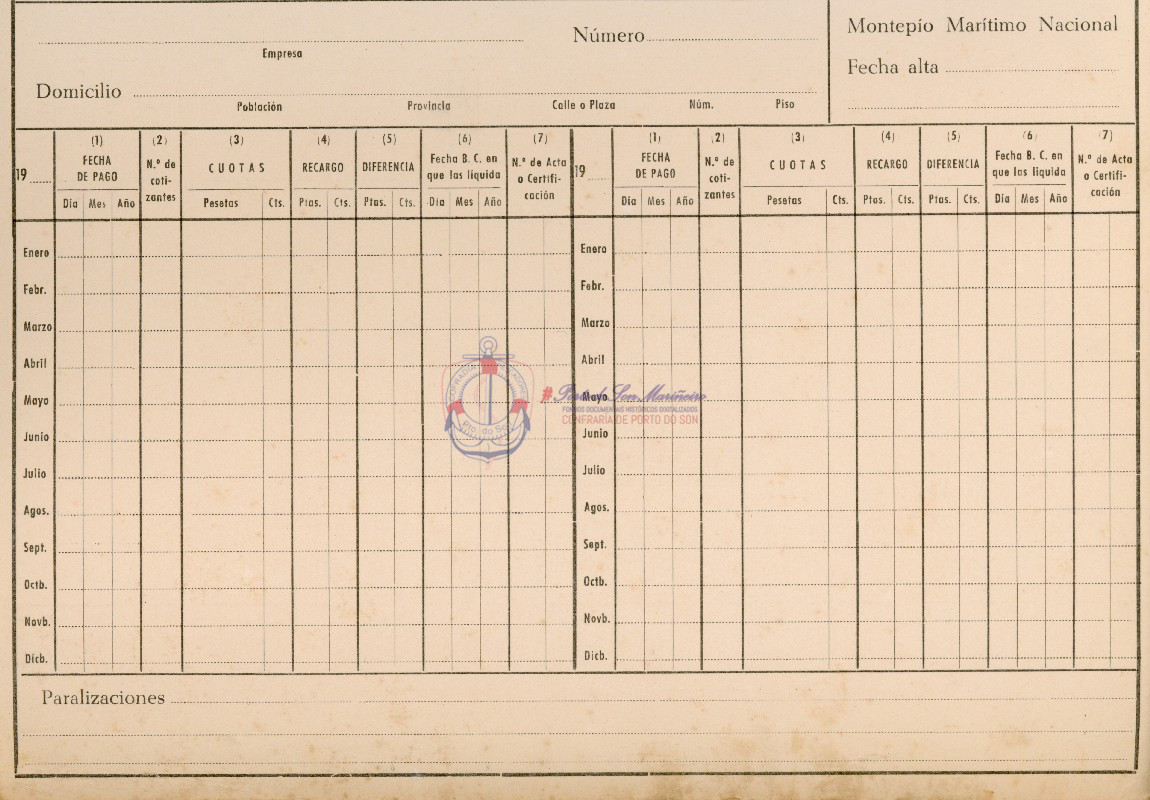 Número
Montepío Marítimo Nacional
Empresa
Fecha alta
Domicilio
Población Provincia Calle o Plaza Núm. Piso
(1) (2) (3) (4) (5) (6) (7) (1) (2) (3) (4) (5) (6) (7)
19 FECHA DE PAGO N.º de coti- zantes CUOTAS RECARGO DIFERENCIA Fecha B. C. en que las líquida N.º de Acta o Certifi- cación 19 FECHA DE PAGO N.º de coti- zantes CUOTAS RECARGO DIFERENCIA Fecha B. C. en que las líquida N.º de Acta o Certifi- cación
Día Mes Año Pesetas Cts. Ptas. Cts. Ptas. Cts. Día Mes Año Día Mes Año Pesetas Cts. Ptas. Cts. Ptas. Cts. Día Mes Año
Enero Enero
Febr. Febr.
Marzo Marzo
Abril Abril
Mayo Mayo
#Porto do Son Mariñeiro
FONDOS DOCUMENTAIS HISTÓRICOS DIXITALIZADOS
CONFRARÍA DE PORTO DO SON
Pto. do Son
Junio Junio
Julio Julio
Agos. Agos.
Sept. Sept.
Octb. Octb.
Novb. Novb.
Dicb. Dicb.
Paralizaciones